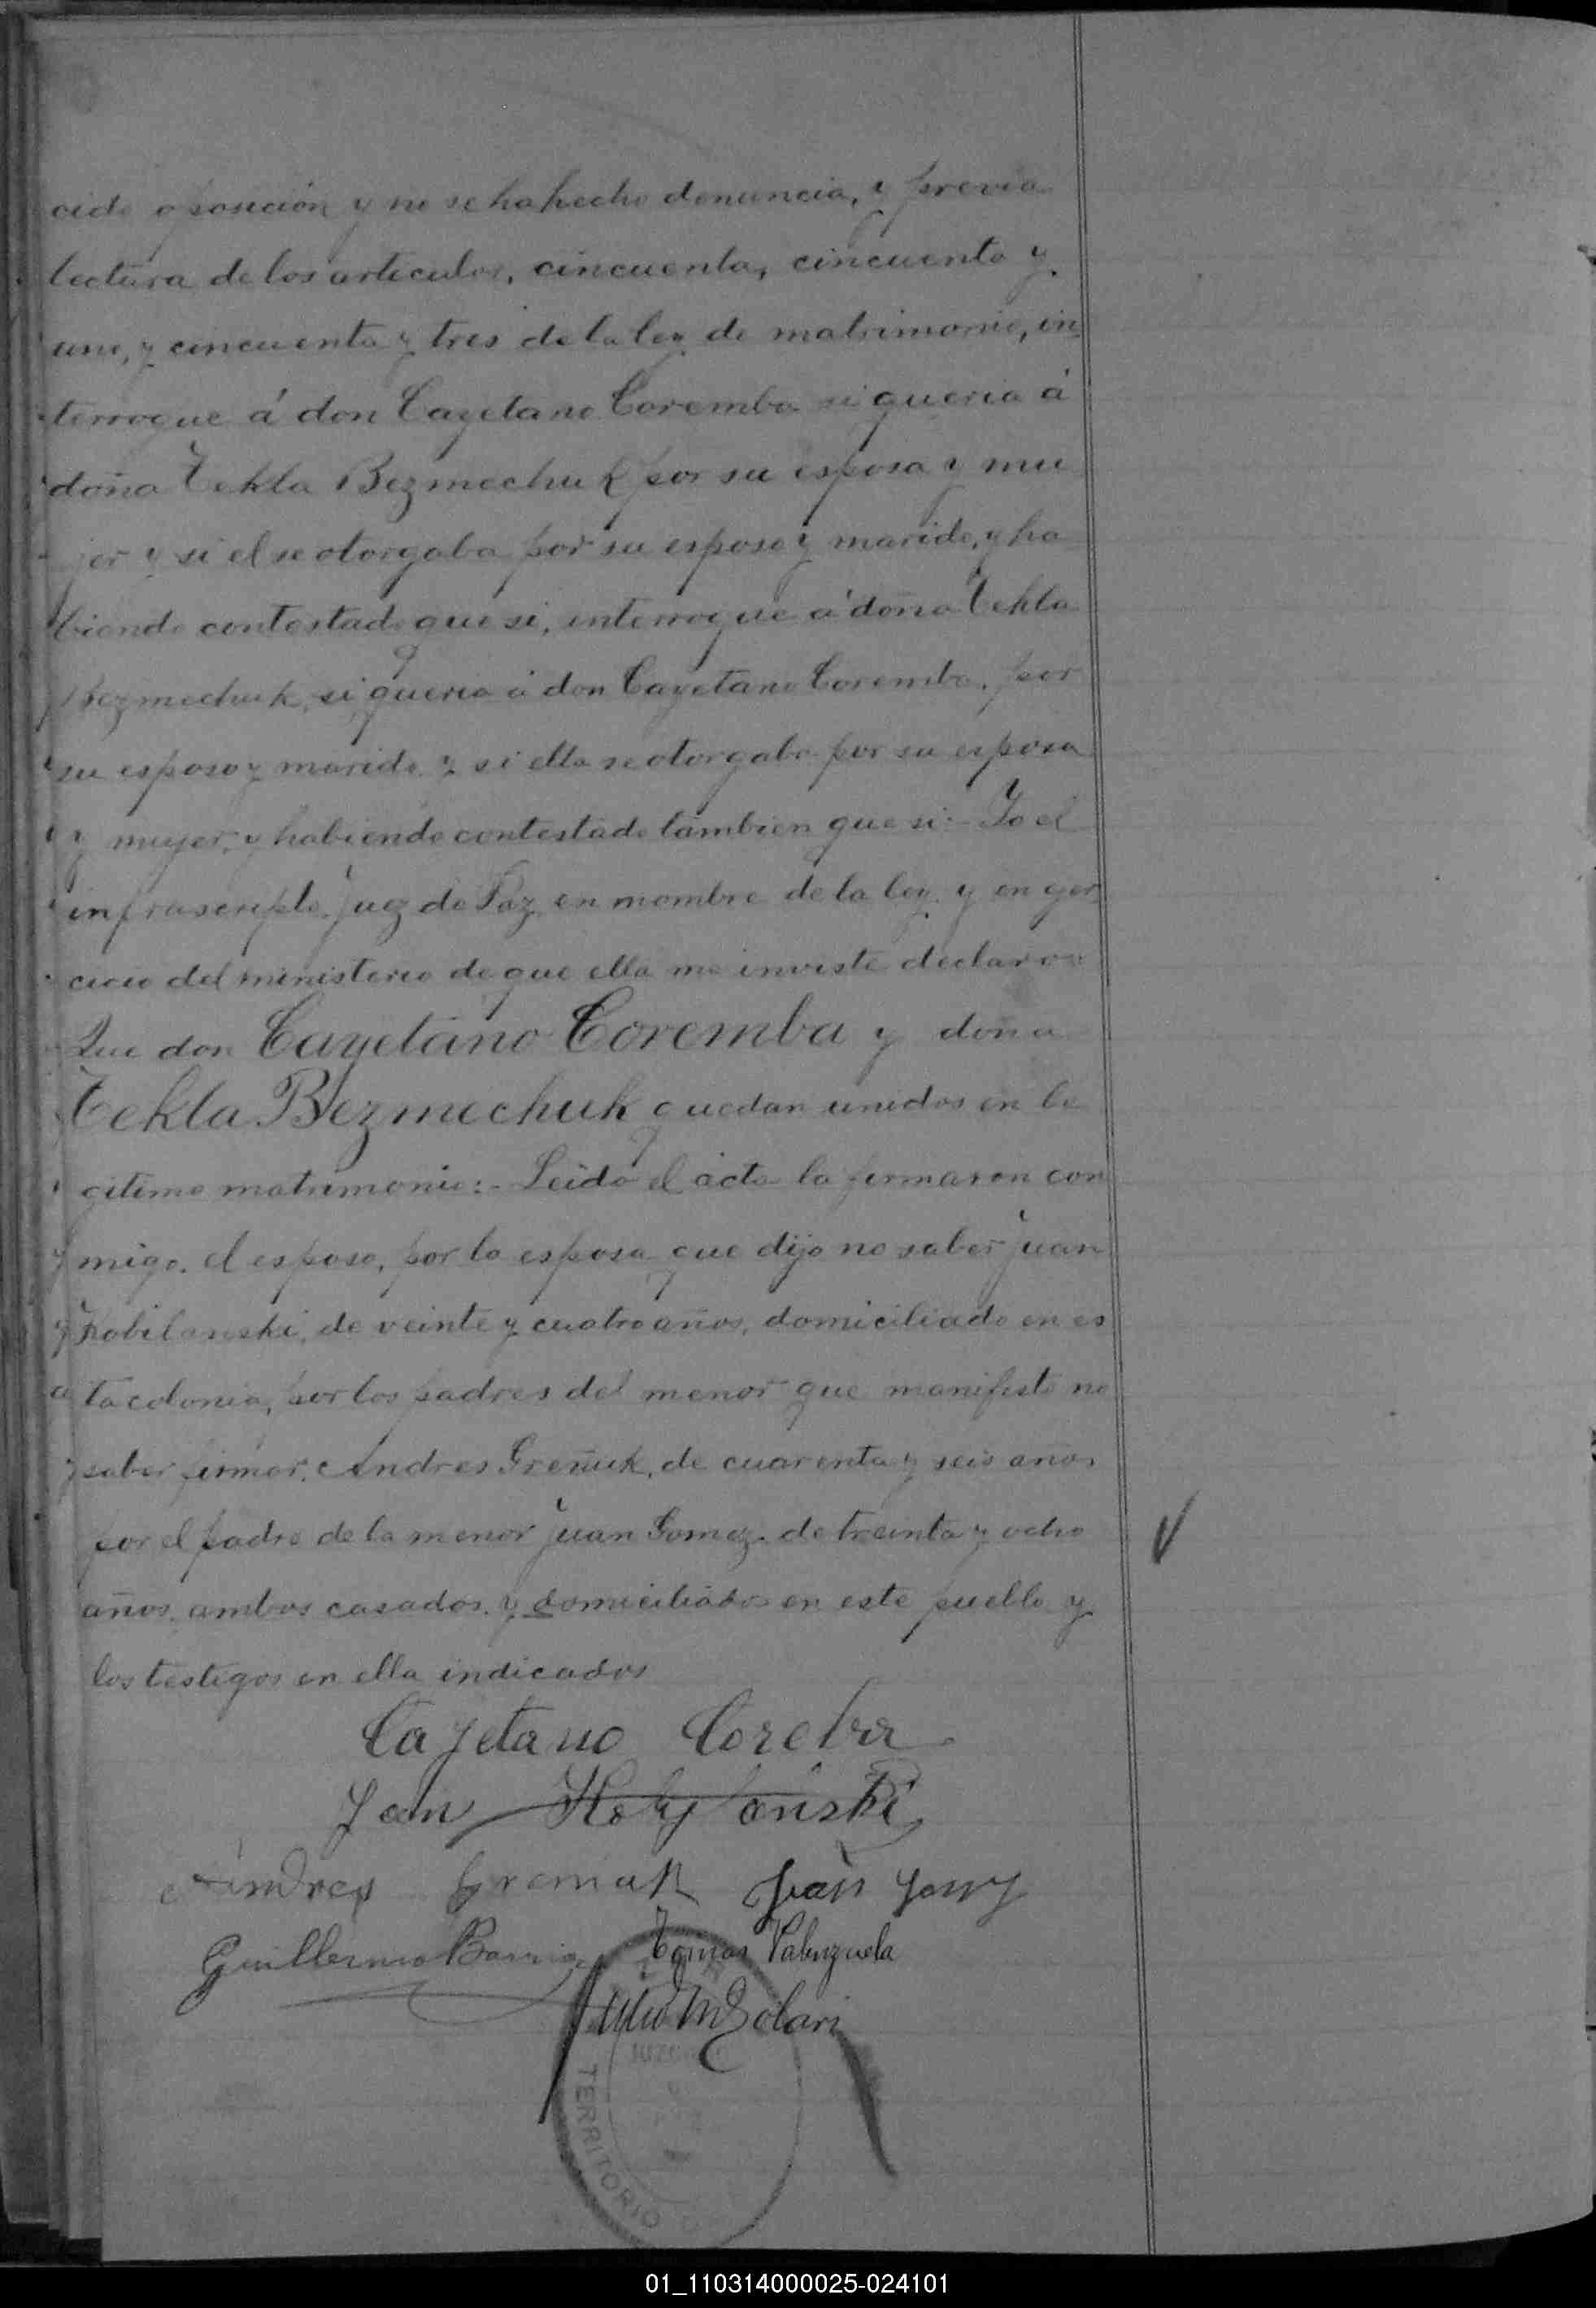 cido oposición y no se ha hecho denuncia, y previa
lectura de los articulos, cincuenta, cincuenta y
uno, y cincuenta y tres de la ley de matrimonio, in
terrogue á don Cayetano Coremba si queria á
doña Tekla Bezmechuk por su esposa y mu
jer y si el se otorgaba por su esposo y marido, y ha
biendo contestado que si, interrogue á doña Tekla
Bezmechuk, si queria á don Cayetano Coremba, por
su esposo y marido y si ella se otorgaba por su esposa
y mujer, y habiendo contestado tambien que si:- Yo el
infrascripto Juez de Paz en nombre de la ley y en ejer
cicio del ministerio de que ella me inviste declaro:
Que don Cayetano Coremba y doña
Tekla Bezmechuk quedan unidos en le
gitimo matrimonio:- Leida el acta la firmaron con
migo, el esposo, por la esposa que dijo no saber Juan
Kobilanski, de veinte y cuatro años, domiciliado en es
ta colonia, por los padres del menor que manifesto no
saber firmar, Andres Greñuk, de cuarenta y seis años
por el padre de la menor Juan Gomez de treinta y ocho
años, ambos casados y domiciliados en este pueblo y
los testigos en ella indicados
Cayetano Coreba
Jan Kobylański
Andres Greniuk Juan Gomez
Guillermo Barrio Tomas Valenzuela
Julio M Solari
JUZG
TERRITORIO D
01_110314000025-024101